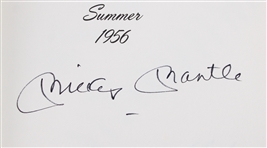 Summer
1956
Mickey Mantle